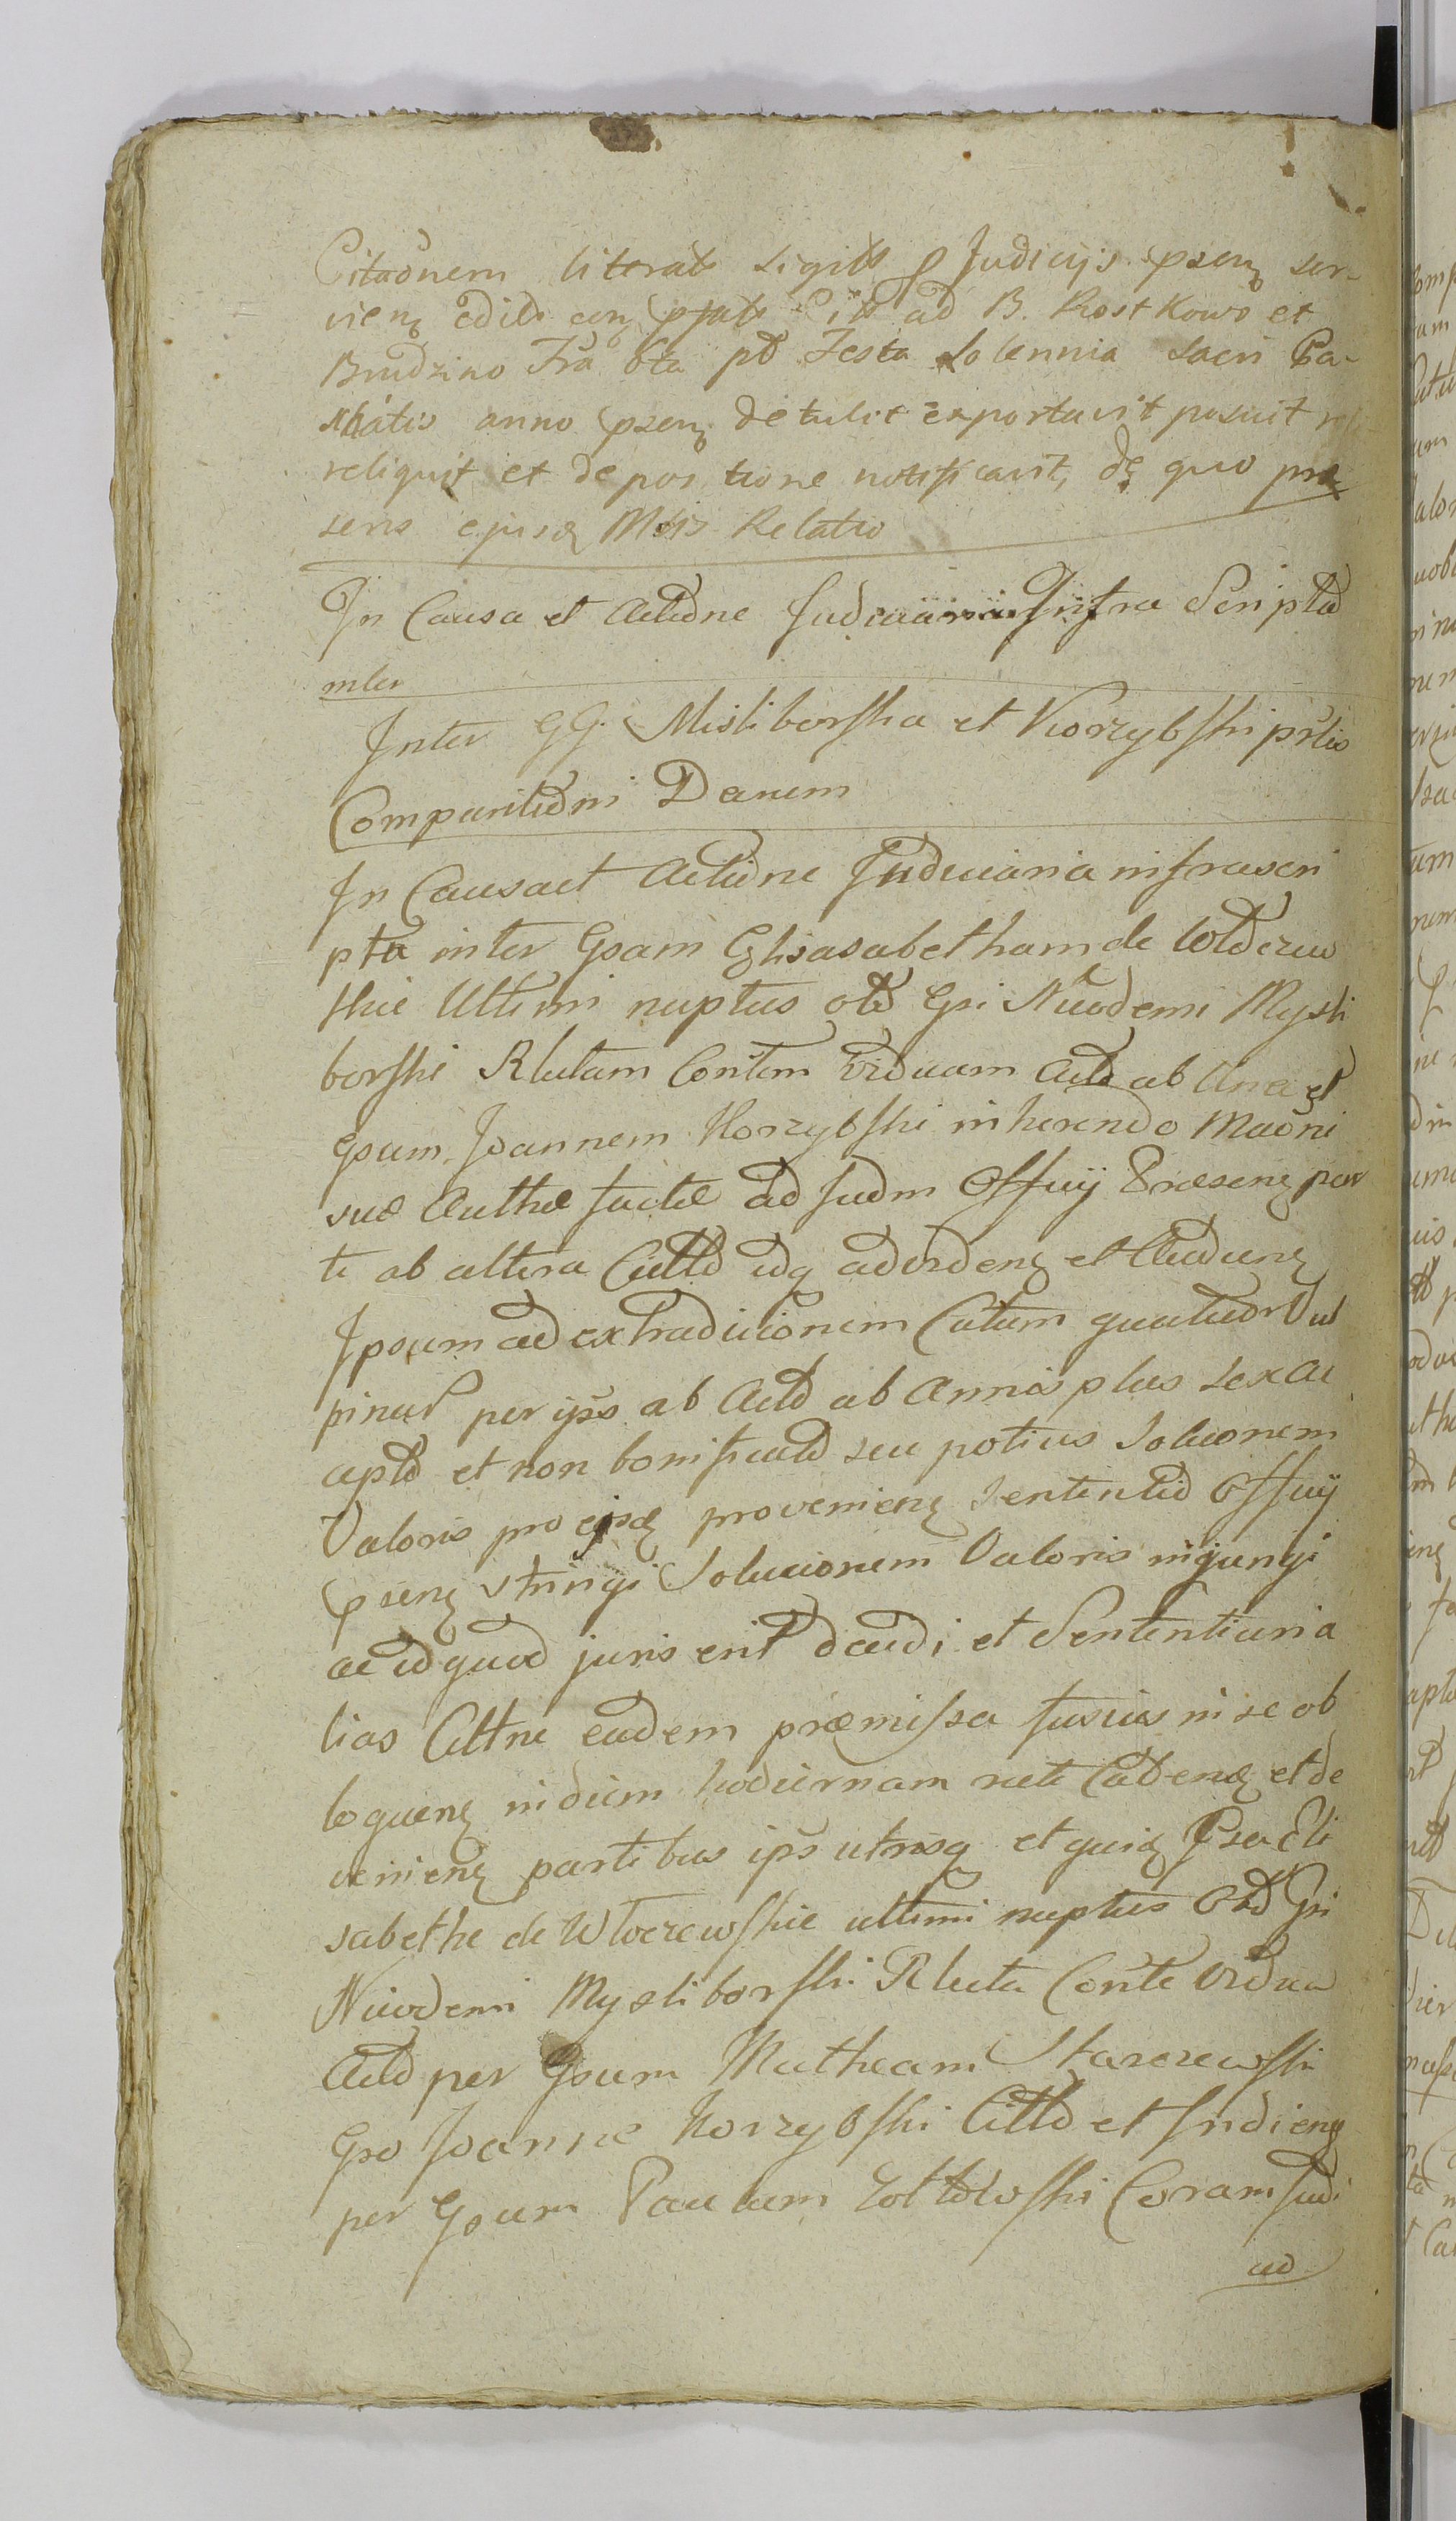 Citaōnem literat sigill p Judicijs psen ser-
vien edit con psate Citt ad B. Rostkowo et
Brudzino Fra 6ta pt Festa Solennia Sacri Pa-
schatis anno psen detulit exportavit posuit
reliquit et de positione notificavit, de quo præ
sens ejusd Mtis Relatio
In Causa et Actione Judiciaria Infra Script
inter
Inter GG. Misliborska et Korzybski prtis
Comparitioni Danem
In Causa et Actione Judiciaria infrascri
pta inter Gsam Elisasabetham de
skie Ultimi nuptus olt Gsi Nicodemi Mysli
borski Rlictam Contem Viduam Act ab Una et
Gsum Joannem Korzybski inherendo Maōni
suæ Authæ factæ ad Judm Offcij Præsen par
te ab altera Citt idq ad viden et Audien
Ipsum ad extradicionem Catum quatuor Vul
pinar per ips ab Act ab Annis plus sex ac
cept et non bonificat seu potius Solucionem
Valoris pro ejisd provenien Sententia Offcij
psen stringi Solucionem Valoris injungi
ac id quod juris erit decidi et Sententiari a
lias Cittne eadem præmissa fusius in se ob
loquen in diem hodiernam rite Caden et de
venien partibus ips utrisq et quid Gsa Eli
sabethe de Wtoczewskie ultimi nuptus Olt Gsi
Nicodemi Mysliborski Rlicta Conte Vidua
Act per Gsum Matheam Starczewski
Gso Joanne Korzybski Citt et Indieng
per Gsum Paulum Zottowski Coram Judi
ad